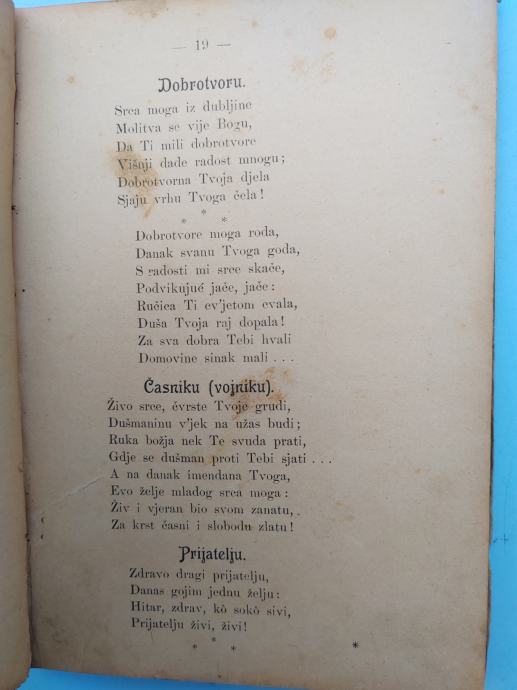 — 19 —
Dobrotvoru.
Srca moga iz dubljine
Molitva se vije Bogu,
Da Ti mili dobrotvore
Višnji dade radost mnogu;
Dobrotvorna Tvoja djela
Sjaju vrhu Tvoga čela!
*
* *
Dobrotvore moga roda,
Danak svanu Tvoga goda,
S radosti mi srce skače,
Podvikujuć jače, jače:
Ručica Ti cv'jetom cvala,
Duša Tvoja raj dopala!
Za sva dobra Tebi hvali
Domovine sinak mali . . .
Časniku (vojniku).
Živo srce, čvrste Tvoje grudi,
Dušmaninu v'jek na užas budi;
Ruka božja nek Te svuda prati,
Gdje se dušman proti Tebi sjati . . .
A na danak imendana Tvoga,
Evo želje mladog srca moga:
Živ i vjeran bio svom zanatu,
Za krst časni i slobodu zlatu!
Prijatelju.
Zdravo dragi prijatelju,
Danas gojim jednu želju:
Hitar, zdrav, kô sokô sivi,
Prijatelju živi, živi!
*
* * *